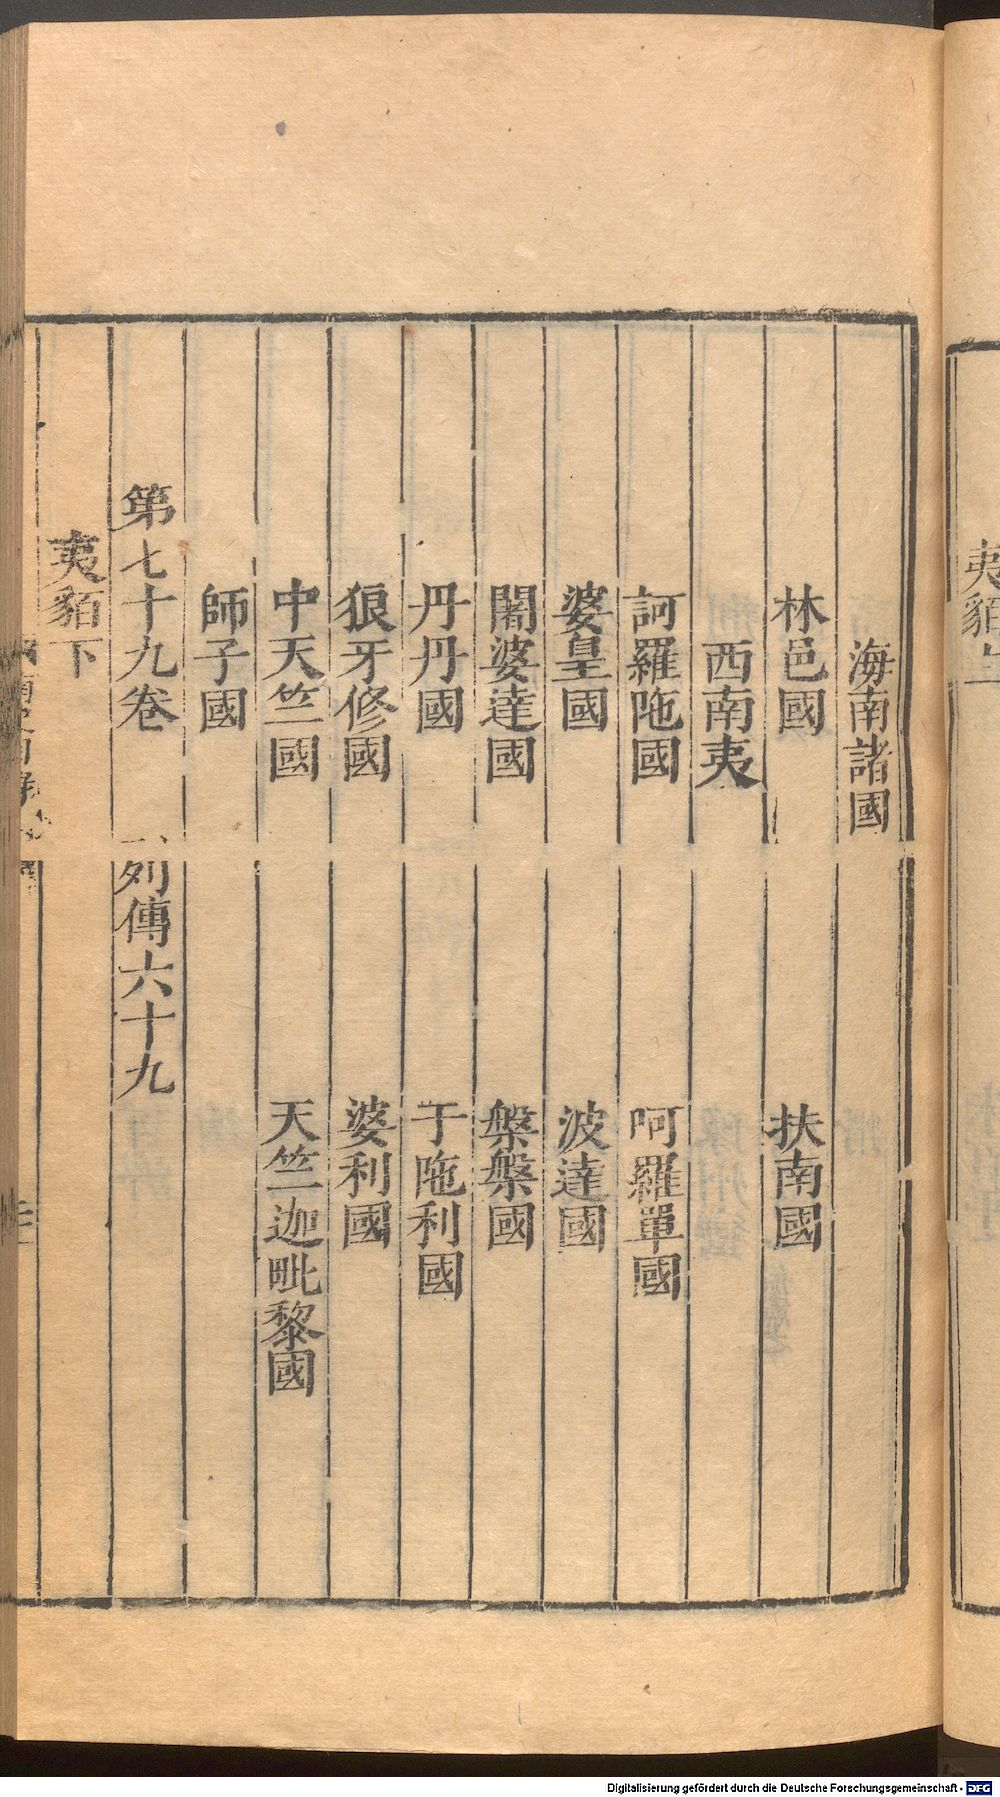 夷貊上
海南諸國
林邑國 扶南國
西南夷
訶羅陁國 呵羅單國
婆皇國 波達國
闍婆達國 槃槃國
丹丹國 于陁利國
狼牙修國 婆利國
中天竺國 天竺迦毗黎國
師子國
第七十九卷 列傳六十九
夷貊下
Digitalisierung gefördert durch die Deutsche Forschungsgemeinschaft - DFG